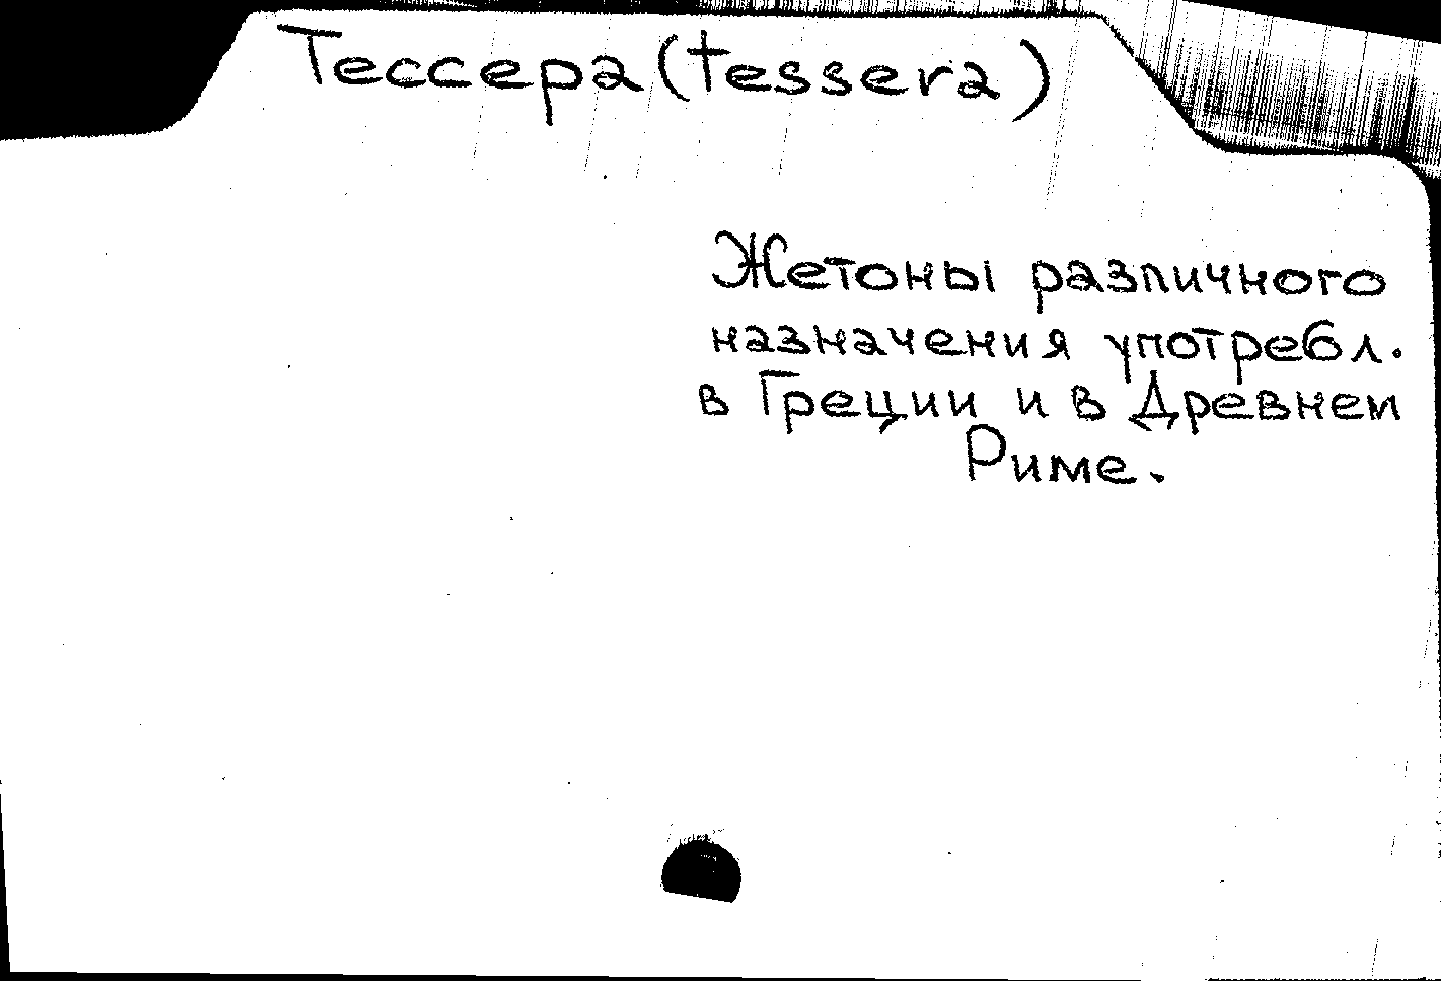 Тессера (tessera)
Жетоны различного
назначения употребл.
в Греции и в Древнем
Риме.